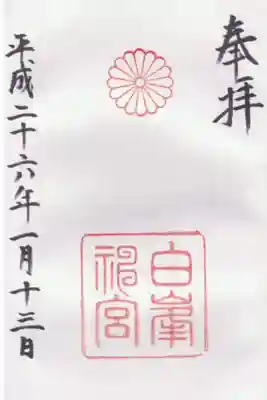 奉拝
白峯
神宮
平成二十六年一月十三日